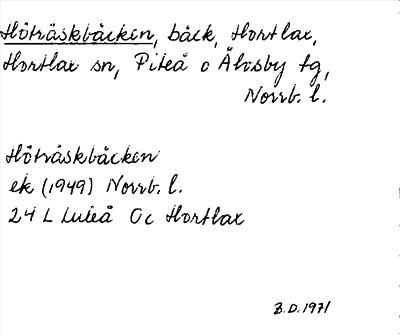 Höträskbäcken, bäck, Hortlax,
Hortlax sn, Piteå o Älvsby tg,
Norrb. l.
Höträskbäcken
ek (1949) Norrb. l.
24 L Luleå Oc Hortlax
B.D. 1971